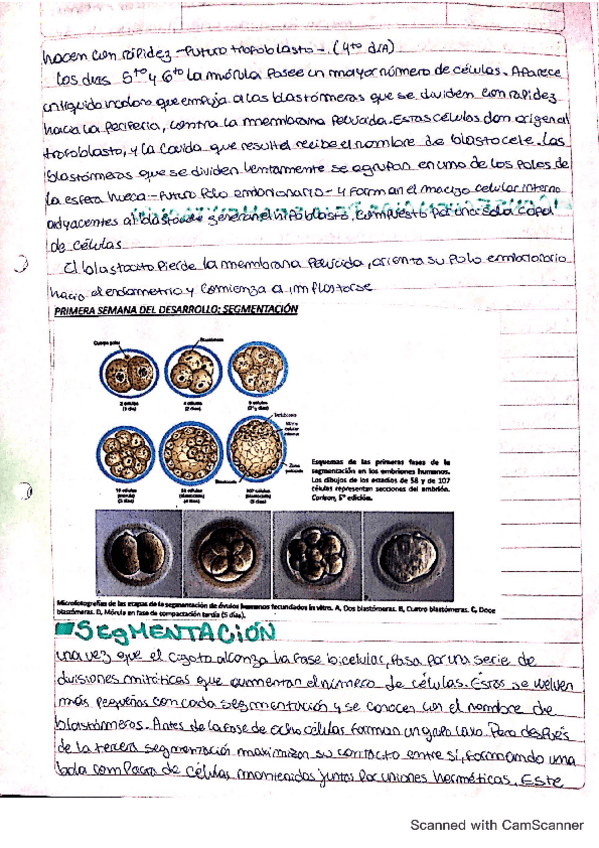 hacen con rápidez -futuro trofoblasto-. (4to día)
Los dias 5to y 6to la mórula posee un mayor número de células. Aparece
un líquido incoloro que empuja a las blastómeras que se dividen con rapidez
hacia la periferia, contra la membrana pelúcida. Estas células dan origen al
trofoblasto, y la cavida que resulta recibe el nombre de blastocele. Las
blastómeras que se dividen lentamente se agrupan en uno de los polos de
la esfera hueca -futuro polo embrionario- y forman el macizo celular interno
adyacentes al blastocele generan el hipoblasto, compuesto por una sola capa
de células
El blastocito pierde la membrana pelucida, orienta su polo embrionario
hacia el endometrio y comienza a implantarse
PRIMERA SEMANA DEL DESARROLLO: SEGMENTACIÓN
Cuerpo polar
Blastómero
2 células
(1 día)
4 células
(2 días)
Trofoblasto
celular
interna
Zona
pelúcida
58 células
(4 días)
107 células
(5 días)
Esquemas de las primeras fases de la
segmentación en los embriones humanos.
Los dibujos de los estadios de 58 y de 107
células representan secciones del embrión.
Carlson, 5ª edición.
Microfotografías de las etapas de la segmentación de óvulos humanos fecundados in vitro. A, Dos blastómeras. B, Cuatro blastómeras. C, Doce
blastómeras. D, Mórula en fase de compactación tardía (5 días).
SEGMENTACIÓN
una vez que el cigoto alcanza la fase bicelular, pasa por una serie de
divisiones mitóticas que aumentan el número de células. Éstas se vuelven
más pequeñas con cada segmentación y se conocen con el nombre de
blastómeros. Antes de la fase de ocho células forman un grupo laxo. Pero después
de la tercera segmentación maximizan su contacto entre sí, formando una
bola compacta de células mantenidas juntas por uniones herméticas. Este
Scanned with CamScanner